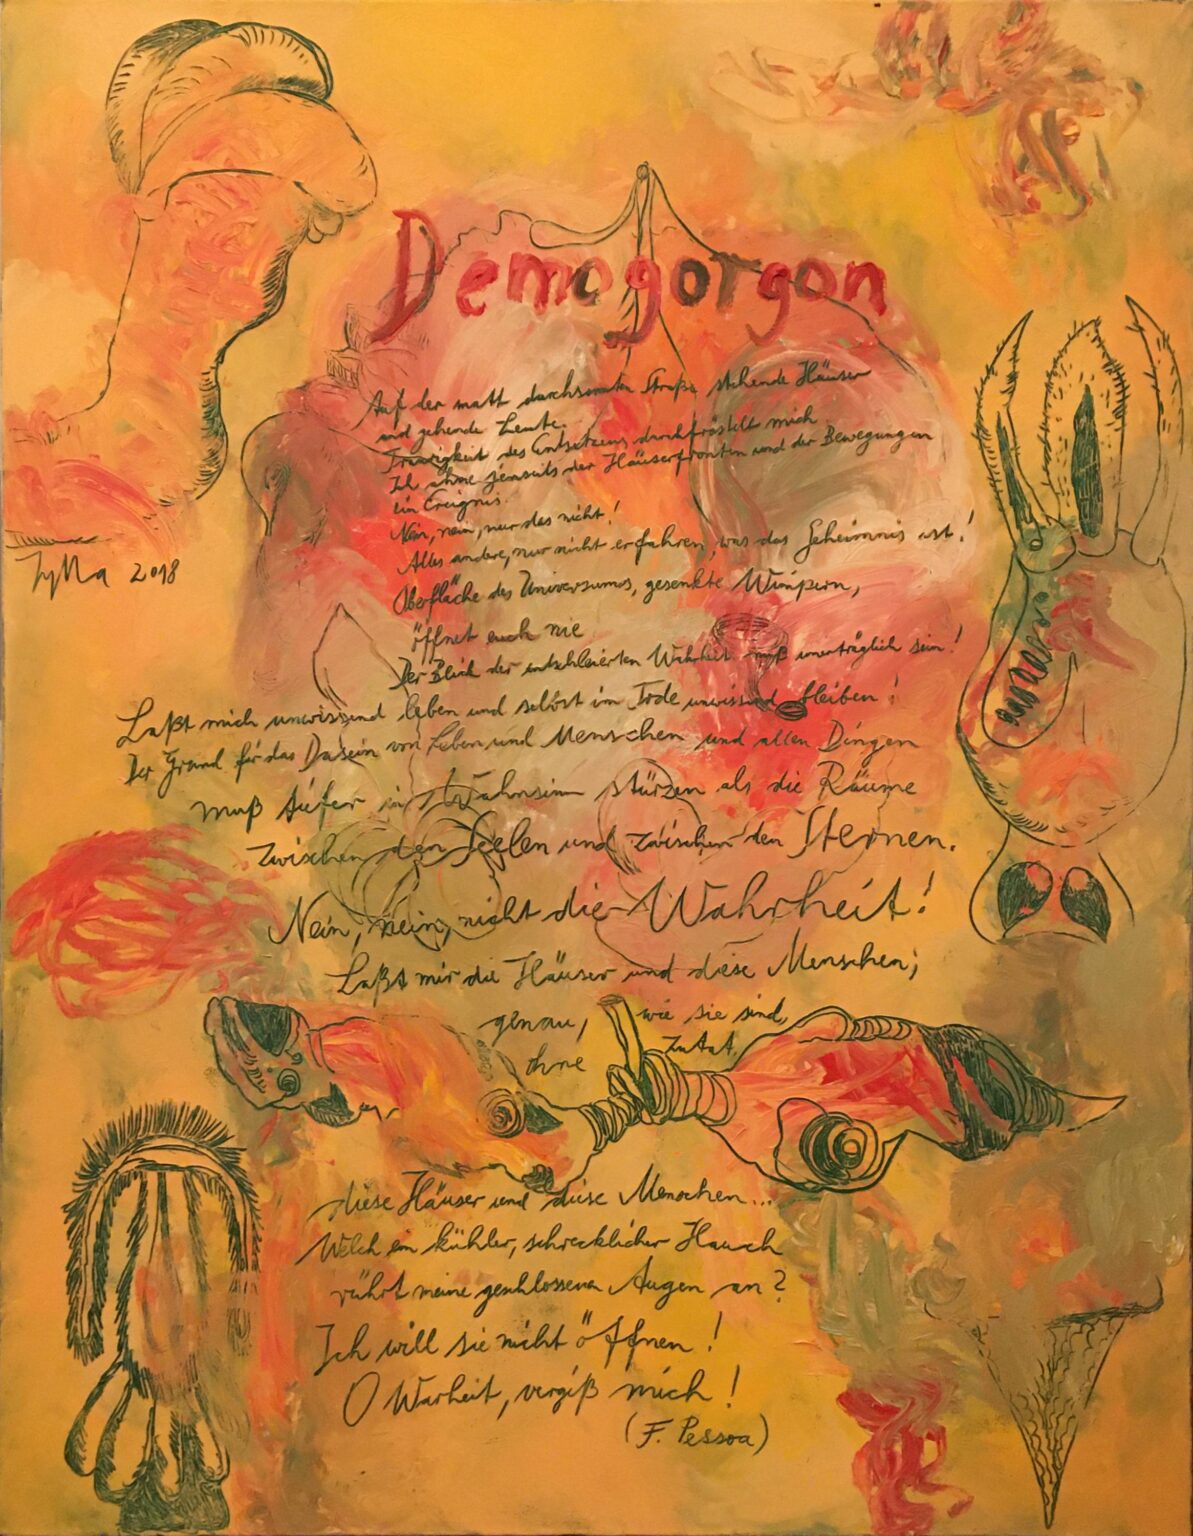 Demogorgon
Auf der matt durchsonnten Straße stehende Häuser
und gehende Leute.
Traurigkeit des Entsetzens durchfröstelt mich
Ich ahne jenseits der Häuserfronten und der Bewegungen
ein Ereignis.
Nein, nein, nur das nicht!
Alles andere, nur nicht erfahren, was das Geheimnis ist!
Oberfläche des Universums, gesenkte Wimpern,
öffnet euch nie
Der Blick der entschleierten Wahrheit muß unerträglich sein!
Laßt mich unwissend leben und selbst im Tode unwissend bleiben!
Der Grund für das Dasein von Leben und Menschen und allen Dingen
muß tiefer in Wahnsinn stürzen als die Räume
zwischen den Seelen und zwischen den Sternen.
Nein, nein, nicht die Wahrheit!
Laßt mir die Häuser und diese Menschen;
genau, wie sie sind,
ohne Zutat.
diese Häuser und diese Menschen...
Welch ein kühler, schrecklicher Hauch
rührt meine geschlossenen Augen an?
Ich will sie nicht öffnen!
O Warheit, vergiß mich!
(F. Pessoa)
2018